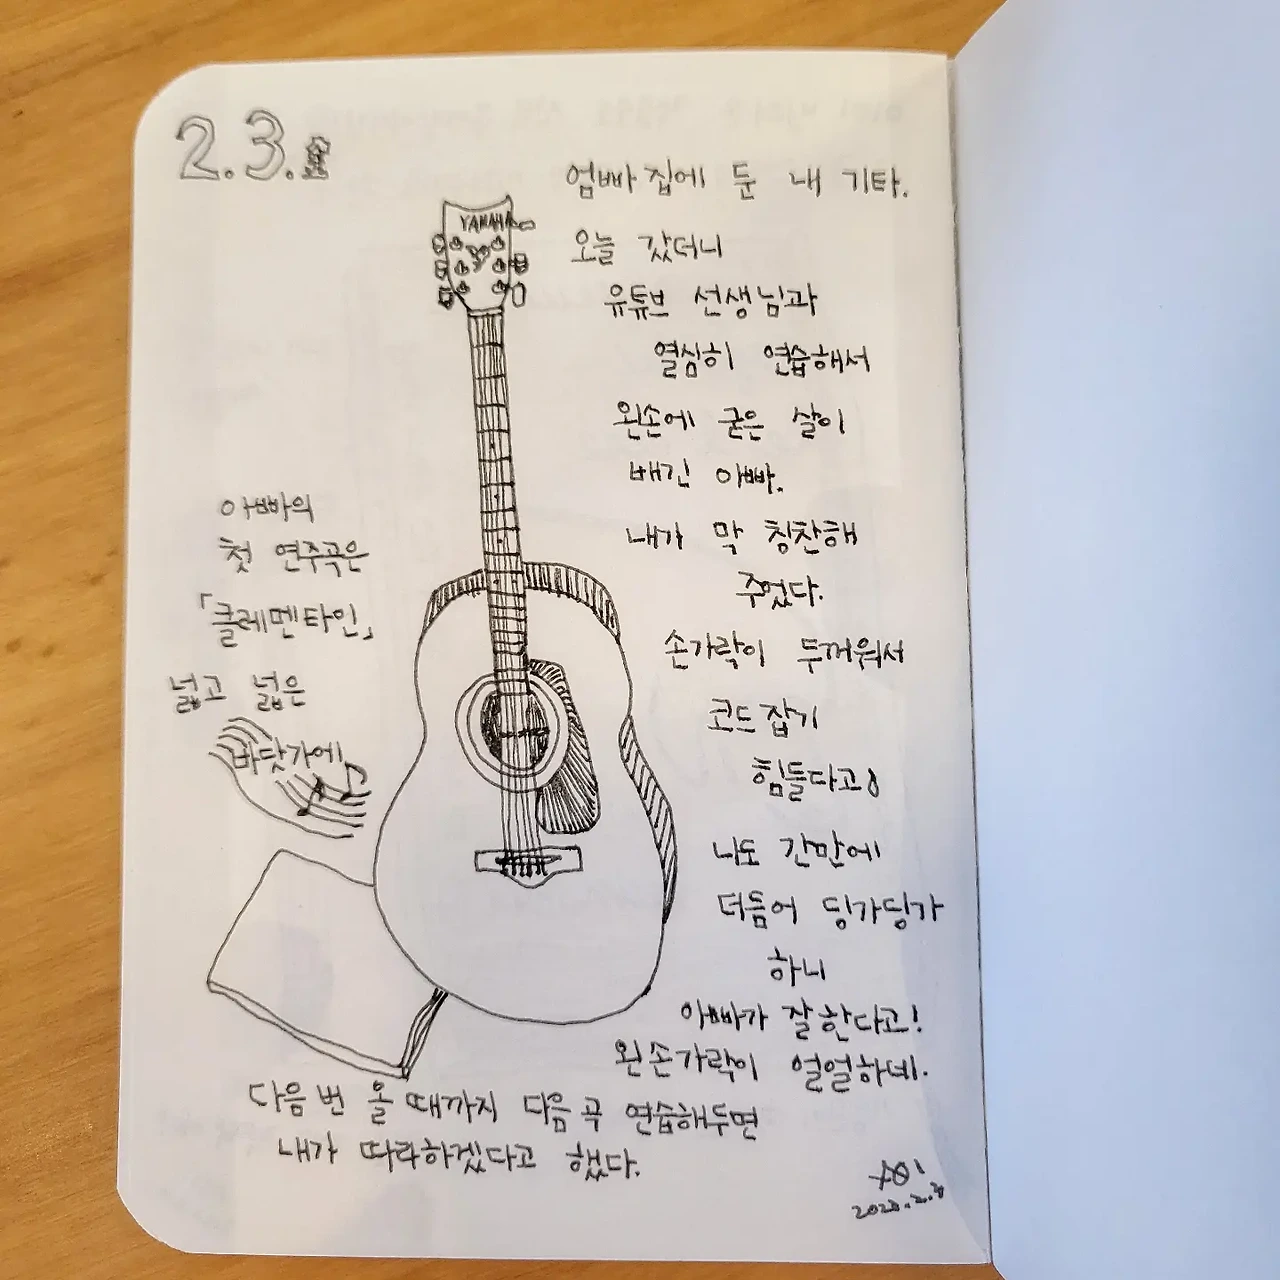 2.3.금
YAMAHA
엄빠 집에 둔 내 기타.
오늘 갔더니
유튜브 선생님과
열심히 연습해서
왼손에 굳은 살이
배긴 아빠.
내가 막 칭찬해
주었다.
손가락이 두꺼워서
코드 잡기
힘들다고!
나도 간만에
더듬어 딩가딩가
하니
아빠가 잘 한다고!
왼손가락이 얼얼하네.
아빠의
첫 연주곡은
「클레멘타인」
넓고 넓은
바닷가에
다음 번 올 때까지 다음 곡 연습해두면
내가 따라하겠다고 했다.